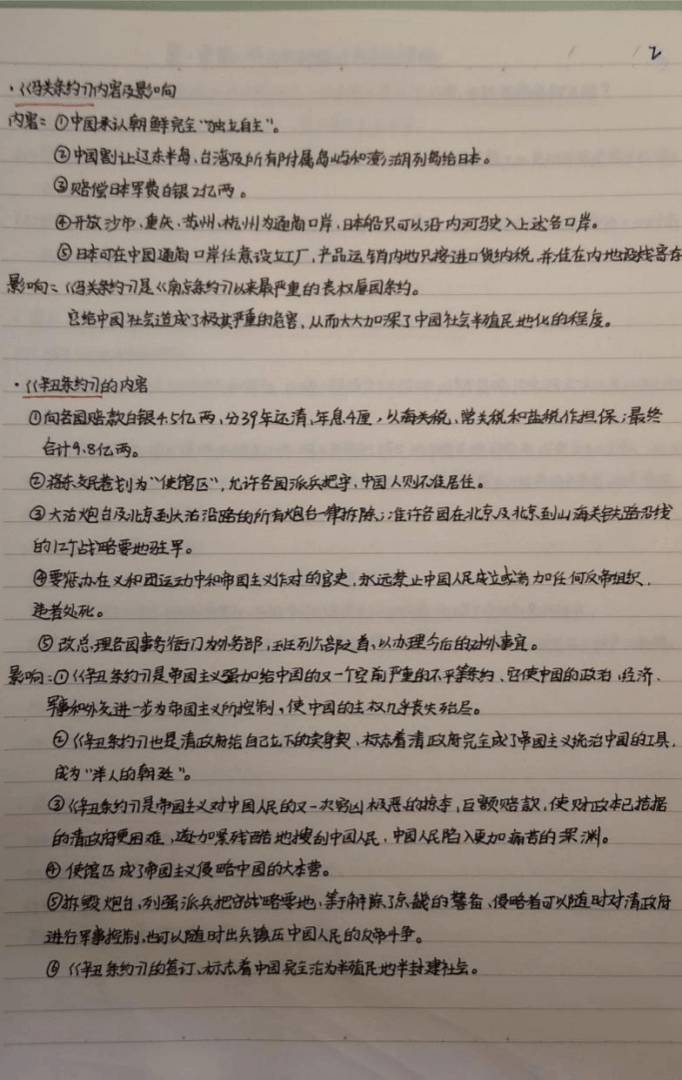 2
·《马关条约》内容及影响
内容：①中国承认朝鲜完全“独立自主”。
②中国割让辽东半岛、台湾及所有附属岛屿和澎湖列岛给日本。
③赔偿日本军费白银2亿两。
④开放沙市、重庆、苏州、杭州为通商口岸，日本船只可以沿内河驶入上述各口岸。
⑤日本可在中国通商口岸任意设立工厂，产品运销内地只按进口货纳税，并准在内地设栈寄存
影响：《马关条约》是《南京条约》以来最严重的丧权辱国条约。
它给中国社会造成了极其严重的危害，从而大大加深了中国社会半殖民地化的程度。
·《辛丑条约》的内容
①向各国赔款白银4.5亿两，分39年还清，年息4厘，以海关税、常关税和盐税作担保；最终
合计9.8亿两。
②将东交民巷划为“使馆区”，允许各国派兵把守，中国人则不准居住。
③大沽炮台及北京到大沽沿路的所有炮台一律拆除；准许各国在北京及北京到山海关铁路沿线
的12个战略要地驻军。
④要惩办在义和团运动中和帝国主义作对的官吏，永远禁止中国人民成立或参加任何反帝组织，
违者处死。
⑤改总理各国事务衙门为外务部，班列六部之首，以办理今后的对外事宜。
影响：①《辛丑条约》是帝国主义强加给中国的又一个空前严重的不平等条约、它使中国的政治、经济、
军事和外交进一步为帝国主义所控制，使中国的主权几乎丧失殆尽。
②《辛丑条约》也是清政府给自己立下的卖身契、标志着清政府完全成了帝国主义统治中国的工具，
成为“洋人的朝廷”。
③《辛丑条约》是帝国主义对中国人民的又一次穷凶极恶的掠夺，巨额赔款，使财政本已拮据
的清政府更困难，遂加紧残酷地搜刮中国人民，中国人民陷入更加痛苦的深渊。
④使馆区成了帝国主义侵略中国的大本营。
⑤拆毁炮台，列强派兵把守战略要地，等于解除了京畿的警备、侵略者可以随时对清政府
进行军事控制，也可以随时出兵镇压中国人民的反帝斗争。
⑥《辛丑条约》的签订、标志着中国完全沦为半殖民地半封建社会。